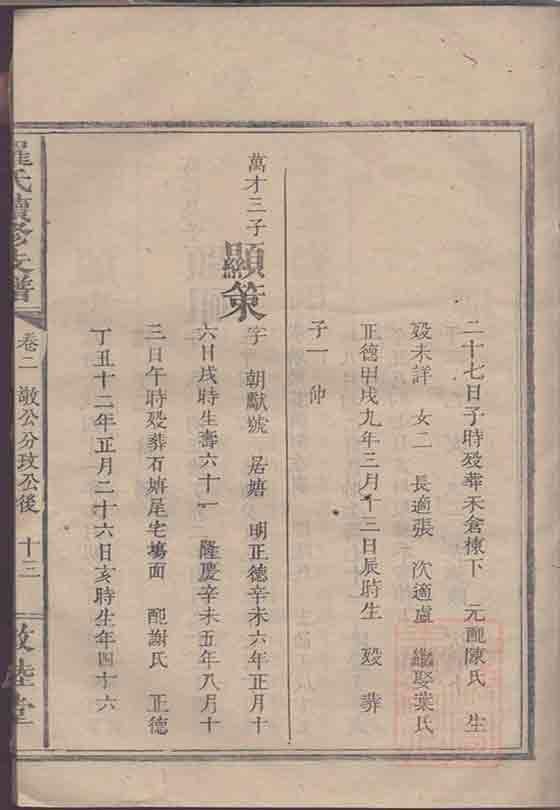 二十七日子時殁葬禾倉棟下 元配陳氏 生
殁未詳 女二 長適張 次適盧 繼娶葉氏
正德甲戌九年三月十三日辰時生 殁 葬
子一 仲
萬才三子
顯策
字 朝獻號 居塘 明正德辛未六年正月十
六日戌時生壽六十一 隆慶辛未五年八月十
三日午時殁葬石塘尾宅塲面 配謝氏 正德
丁丑十二年正月二十六日亥時生年四十六
羅氏續修支譜
卷二 敬公分玫公後 十三
敦睦堂